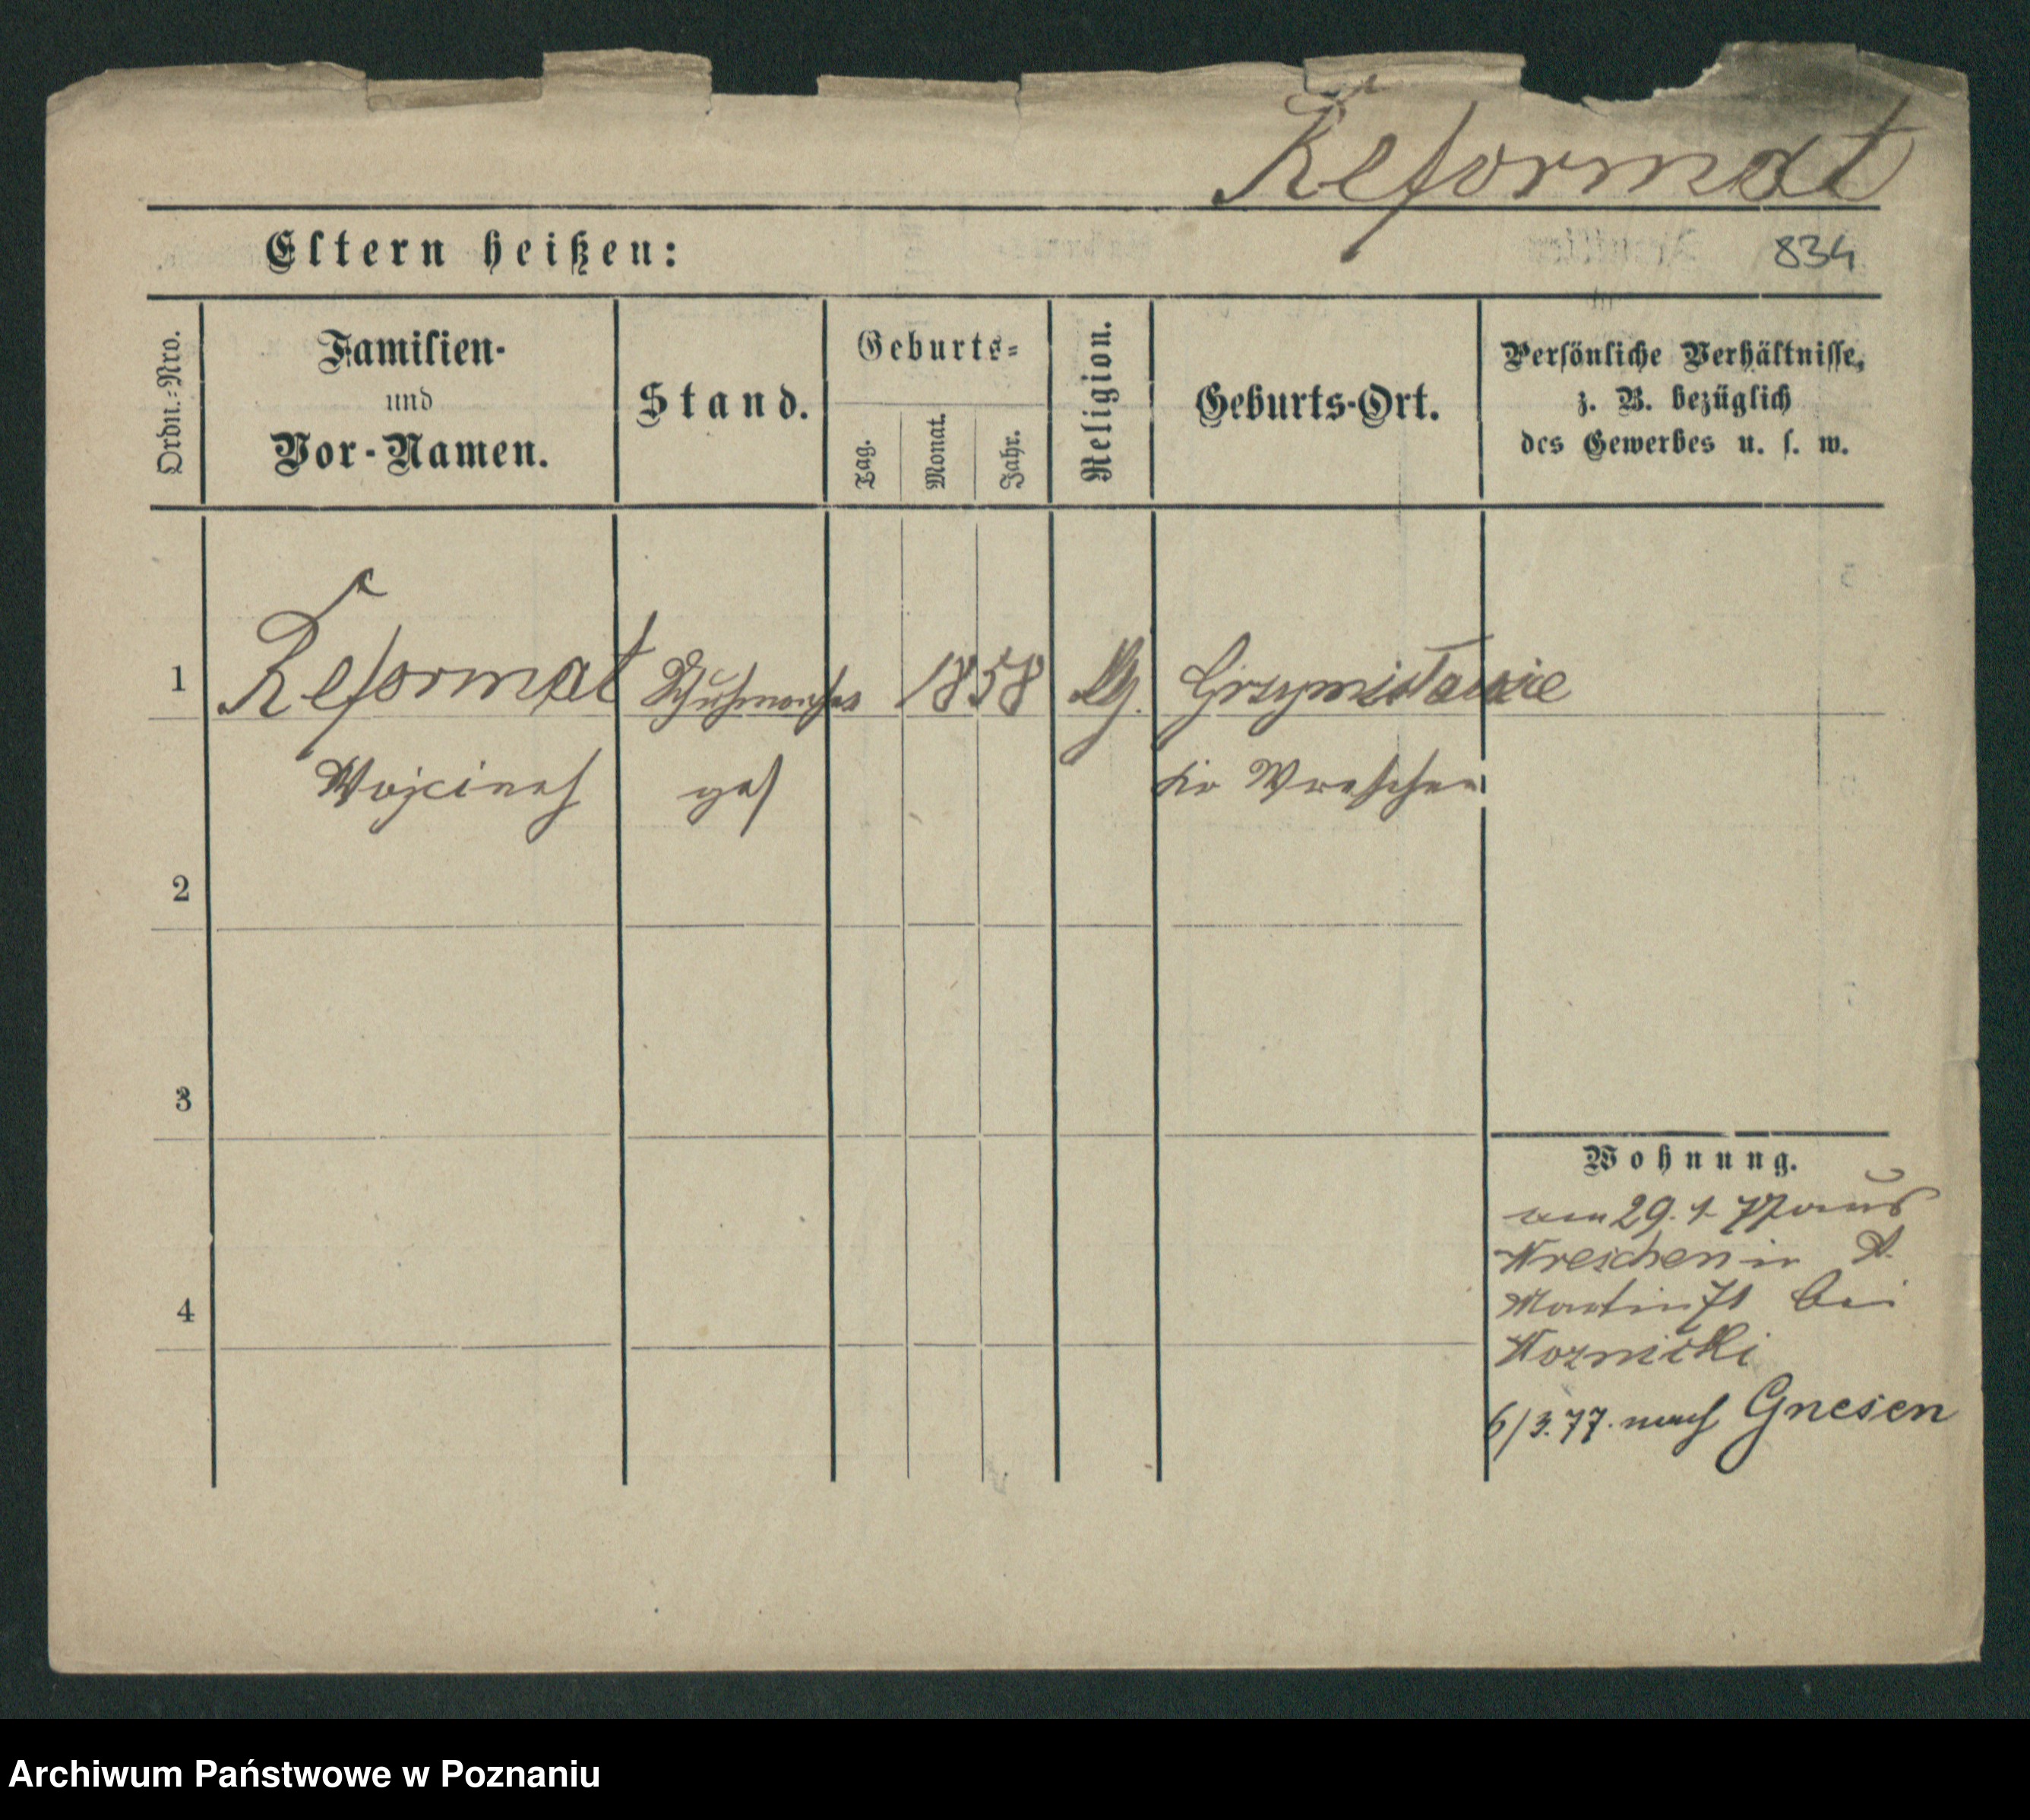 Reformat
Eltern heißen:
834
Ordn.-Nro.
Familien-
und
Vor-Namen.
Stand.
Geburts-
Tag.
Monat.
Jahr.
Religion.
Geburts-Ort.
Persönliche Verhältnisse,
z. B. bezüglich
des Gewerbes u. s. w.
1
Reformat
1858
Grzymisławice
Wreschen
2
3
4
Wohnung.
am 29. 1. 77 aus
Wreschen in St.
Martin 71 bei
Woznicki
6/3.77. nach Gnesen
Archiwum Państwowe w Poznaniu